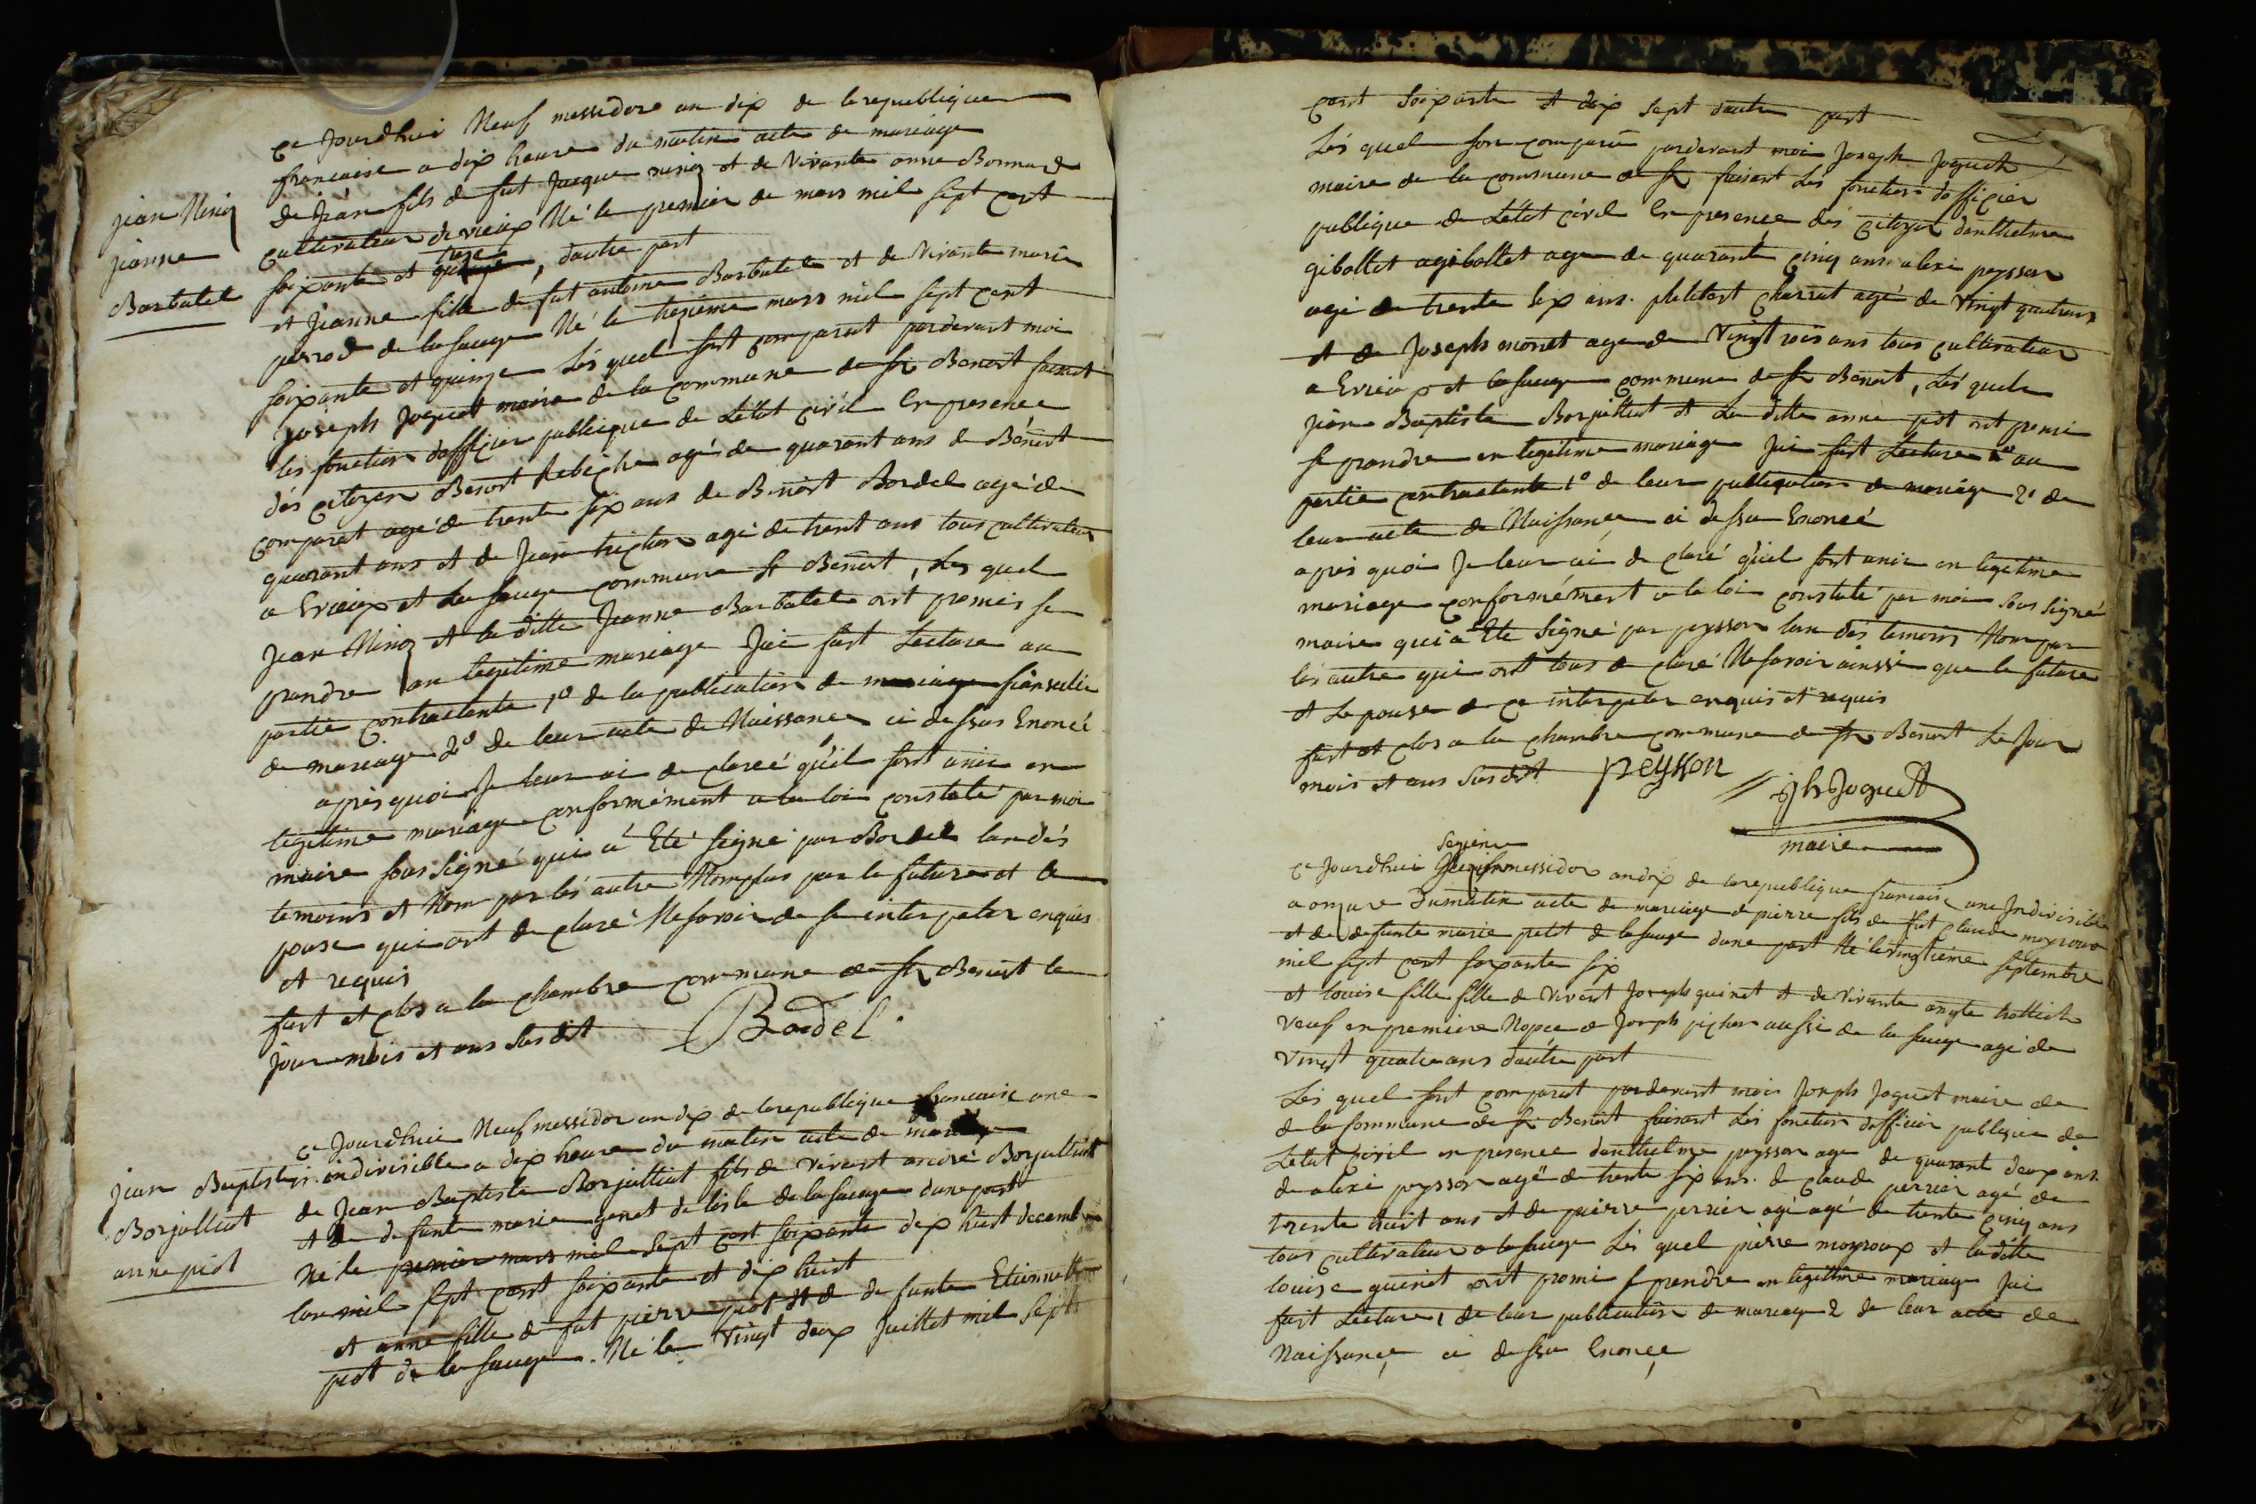 Ce Jourdhui Neuf messidore an dix de la republique
francaise a dix heure du matin acte de mariage
de Jean fils de fut Jacque ninoz et de vivante anne Bonnard
cultivateur dévieux Né le premier de mars mil sept cent
soixante et treze, dautre part
et Jeanne fille de fut antoine Barbatel et de vivante marie
perrod de la sauge Né le trezieme mars mil sept cent
soixante et quinze Lés quel sont comparut pardevant moi
Joseph Joguet maire de la commune de St Benoit faisant
les fonction dofficier publique de Létat civil En presence
dés citoyen Benoit Rebiche agé de quarant ans de Bénoit
comparat agé de trente six ans de Benoit Bordel agé de
quarant ans et de Jean trichon agé de trent ans tous cultivateur
a Evieux et La sauge commune St Benoit, Les quel
Jean Ninoz et la ditte Jeanne Barbatel ont promis se
prendre en legitime mariage Jai fait Lecture au
partie contractente 1º de la publication de mariage
de mariage 2º de leur acte de Naissance ci dessus Enoncé
apres quoi Je leur ai de claré quil sont unie en
legitime mariage conformément a la loi constaté par moi
maire sous signé qui a Eté signé par Bordel lun dés
temoins et Nom par lés autre Nomplus par le future et le
pouse qui ont de claré Nesavoir de se interpeler enquis
et requis
fait et clos a la chambre commune de St Benoit le
Jour mois et ans sus dit Bordel
Jean Ninoz
Jeanne
Barbatel
Ce Jourdhui Neuf messidor an dix de la republique francaise une
indivisible a dix heure du matin acte de mariage
de Jean Baptiste Borjalliat fils de vivant andré Borjalliat
et de defunte marie genet de lisle de la sauge dune part
Né le premier mars mil sept cent soixante dix huit decembre
lan mil sept cent soixante et dix huit
et anne fille de fut pierre piot et de defunte Etiennette
piot de la sauge. Né le vingt deux Juillet mil sept
Jean Baptiste
Borjalliat
anne piot
cent soixante et dix sept dautre part
Lés quel son comparu pardevant moi Joseph Joguet
maire de la commune de St faisant Lés fonction dofficier
publique de Létat civil En presence dés citoyen danthelme
giballet agiballet age de quarante cinq ans alexi peysson
agé de trente six ans. philibert Charrut agé de vingt quatre ans
et de Joseph monet age de vingt trois ans tous cultivateur
a Evieux et la sauge commune de St Benoit, Lés quel
Jean Baptiste Borjalliat et La ditte anne piot ont promi
se prendre en legitime mariage Jai fait Lecture au
partie contractente 1º de leur publication de mariage 2º de
leur acte de Naissance ci dessu Enoncé
apres quoi Je leur ai de claré quil sont unie en legitime
mariage conformément a la loi constaté par moi sous signé
maire qui a Eté signé par peysson lun dés temoins Nom par
lés autre qui ont tous de claré Ne savoir ainssi que le future
et Lepouse de ce interpeler enquis et requis
fait et clos a la chambre commune de St Benoit Le Jour
mois et ans susdit peysson
jh Joguet
maire
Ce Jourdhui sezieme messidor an dix de la republique francaise une Indivisible
a onze ure du matin acte de mariage de pierre fils de fut Claude moyroux
et de defunte marie petit de la sauge dune part Né le vingtieme septembre
mil sept cent soixante six
et Louise fille fille de vivant Joseph guinet et de vivante angle trollieh
veuf en premiere Nopce de Joseph pichon aussi de la sauge agé de
vingt quatre ans dautre part
Lés quel sont comparut pardevant moi Joseph Joguet maire de
de la commune de St Benoit faisant Lés fonction dofficier publique de
Létat civil en presence danthelme peysson age de quarant deux ans.
de alexi peysson agé de trente six ans. de claude perrier agé de
trente huit ans et de pierre perrier agé agé de trente cinq ans
tous cultivateur a la sauge Lés quel pierre moyroux et la ditte
louise guinet ont promi se prendre en legitime mariage Jai
fait Lecture 1 de leur publication de mariage 2 de leur acte de
Naissance ci dessu Enoncé